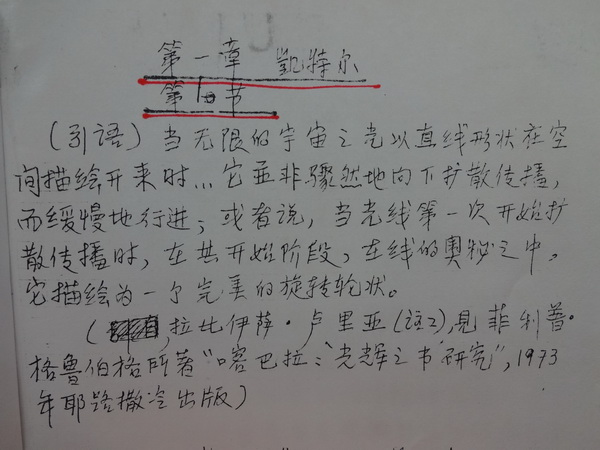 第一章 凯特尔
第1a节
(引语)当无限的宇宙之光以直线形状在空
间描绘开来时...它并非骤然地向下扩散传播,
而缓慢地行进;或者说,当光线第一次开始扩
散传播时,在其开始阶段,在线的奥秘之中,
它描绘为一个完美的旋转轮状。
(拉比伊萨·卢里亚(注2),见菲利普·
格鲁伯格所著"喀巴拉:'光辉之书'研究",1973
年耶路撒冷出版)